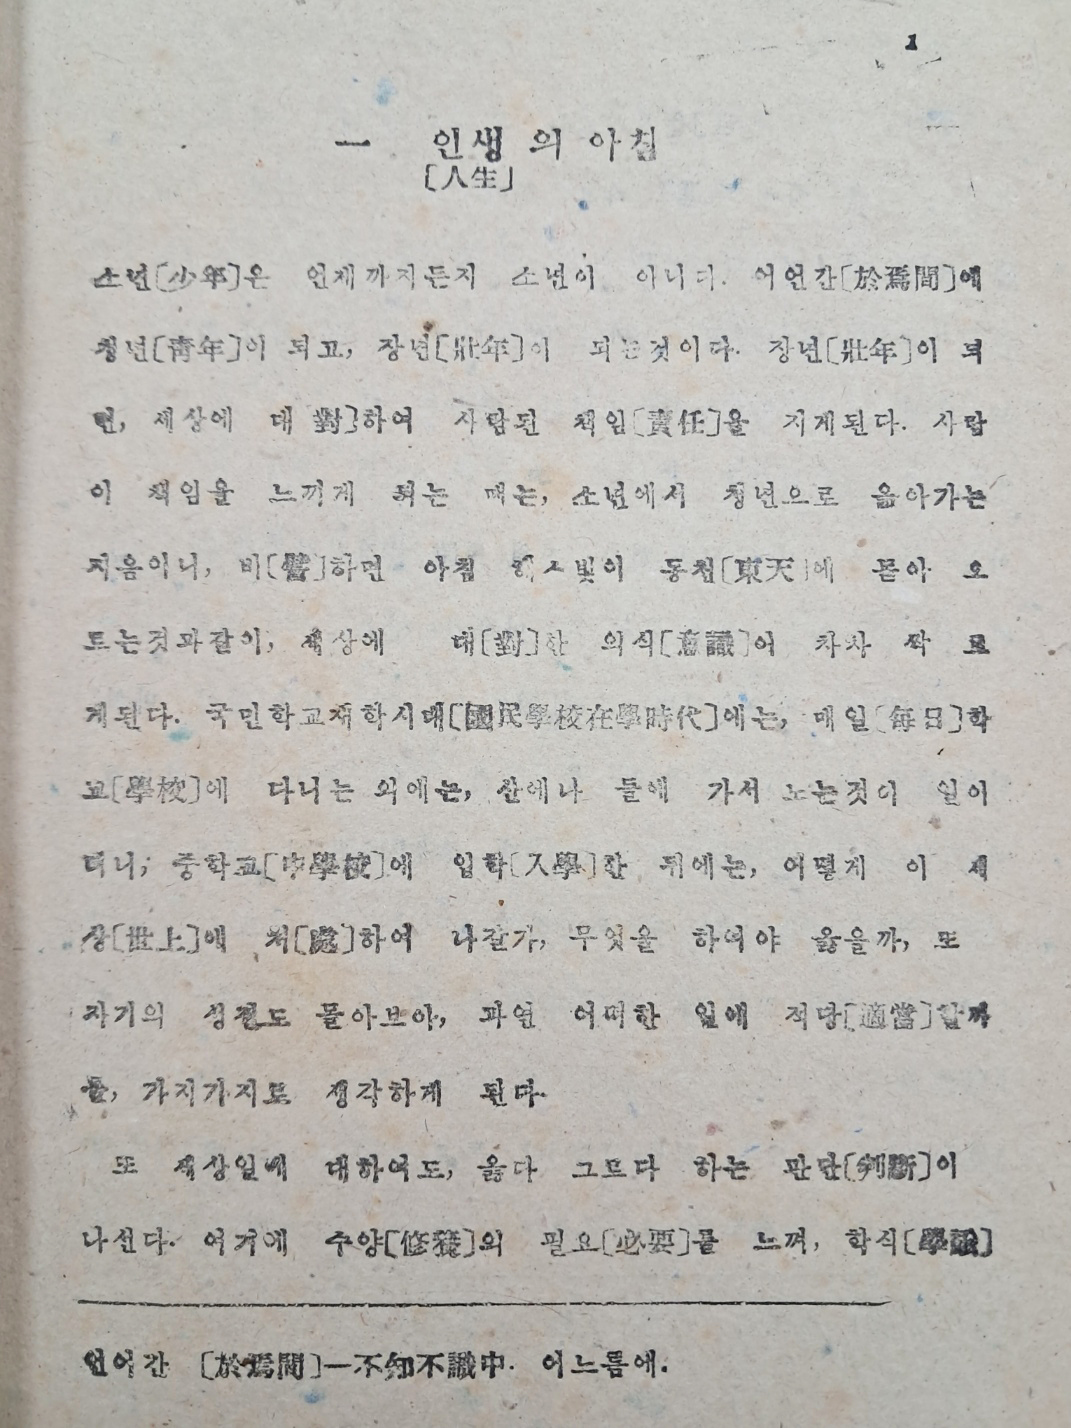 1
一 인생의 아침
[人生]
소년[少年]은 언제까지든지 소년이 아니다. 어언간[於焉間]에
청년[靑年]이 되고, 장년[壯年]이 되는것이다. 장년[壯年]이 되
면, 세상에 대[對]하여 사람된 책임[責任]을 지게된다. 사람
이 책임을 느끼게 되는 때는, 소년에서 청년으로 옮아가는
지음이니, 비[譬]하면 아침 해ㅅ빛이 동천[東天]에 돋아 오
르는것과같이, 세상에 대[對]한 의식[意識]이 차차 싹 트
게된다. 국민학교재학시대[國民學校在學時代]에는, 매일[每日]학
교[學校]에 다니는 외에는, 산에나 들에 가서 노는것이 일이
더니, 중학교[中學校]에 입학[入學]한 뒤에는, 어떻게 이 세
상[世上]에 처[處]하여 나갈가, 무엇을 하여야 옳을까, 또
자기의 성질도 돌아보아, 과연 어떠한 일에 적당[適當]할까
를, 가지가지로 생각하게 된다.
또 세상일에 대하여도, 옳다 그르다 하는 판단[判斷]이
나선다. 여기에 수양[修養]의 필요[必要]를 느껴, 학식[學識]
언어간 [於焉間]—不知不識中. 어느틈에.